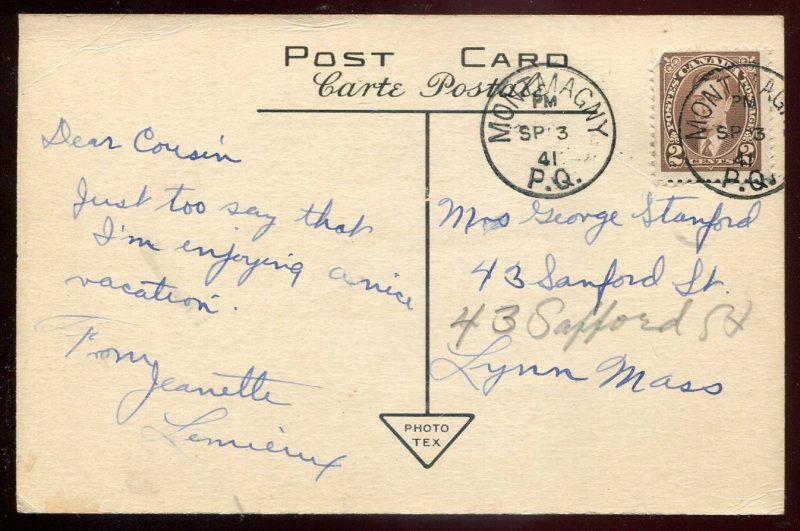 POST CARD
Carte Postale
MONTMAGNY
PM
SP 3
41
P.Q.
POSTES CANADA POSTAGE
2 CENTS 2
MONTMAGNY
PM
SP 3
41
P.Q.
Dear Cousin
Just too say that
I'm enjoying a nice
vacation.
From
Jeanette
Lemieux
Mrs George Stanford
43 Sanford St.
43 Safford St
Lynn Mass
PHOTO
TEX